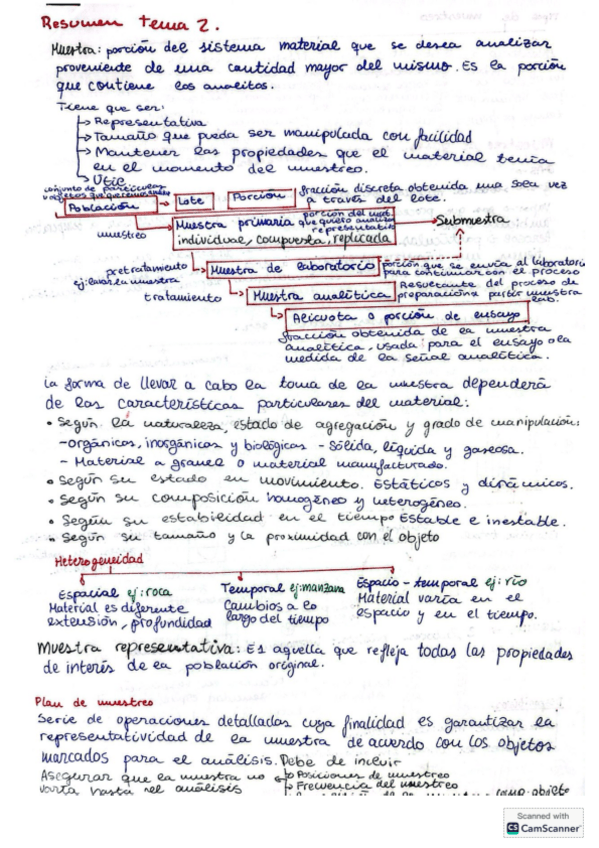 Resumen tema 2.
Muestra: porción del sistema material que se desea analizar
proveniente de una cantidad mayor del mismo. Es la porción
que contiene los analitos.
Tiene que ser:
→ Representativa
→ Tamaño que pueda ser manipulada con facilidad
→ Mantener las propiedades que el material tenía
en el momento del muestreo.
→ Útil
conjunto de partículas
Población → Lote Porción fracción discreta obtenida una sola vez
a través del lote.
muestreo → Muestra primaria porción del mat. que quiero analizar representativa → Submuestra
individual, compuesta, replicada
pretratamiento → Muestra de laboratorio porción que se envía al laboratorio
ej: lavar la muestra para continuar con el proceso
tratamiento → Muestra analítica Resultante del proceso de
preparación a partir muestra
lab.
→ Alicuota o porción de ensayo
fracción obtenida de la muestra
analítica, usada para el ensayo o la
medida de la señal analítica.
La forma de llevar a cabo la toma de la muestra dependerá
de las características particulares del material:
• Según la naturaleza, estado de agregación y grado de manipulación:
- orgánicos, inorgánicos y biológicos - Sólida, líquida y gaseosa.
- Material a granel o material manufacturado.
• Según su estado en movimiento. Estáticos y dinámicos.
• Según su composición homogéneo y heterogéneo.
• Según su estabilidad en el tiempo Estable e inestable.
• Según su tamaño y la proximidad con el objeto
Heterogeneidad
Espacial ej: roca Temporal ej: manzana Espacio - temporal ej: río
Material es diferente Cambios a lo Material varía en el
extensión, profundidad largo del tiempo espacio y en el tiempo.
Muestra representativa: Es aquella que refleja todas las propiedades
de interés de la población original.
Plan de muestreo
Serie de operaciones detalladas cuya finalidad es garantizar la
representatividad de la muestra de acuerdo con los objetos
marcados para el análisis. Debe de incluir
Asegurar que la muestra no → Posiciones de muestreo
varía hasta el análisis → Frecuencia del muestreo
Scanned with
CS CamScanner